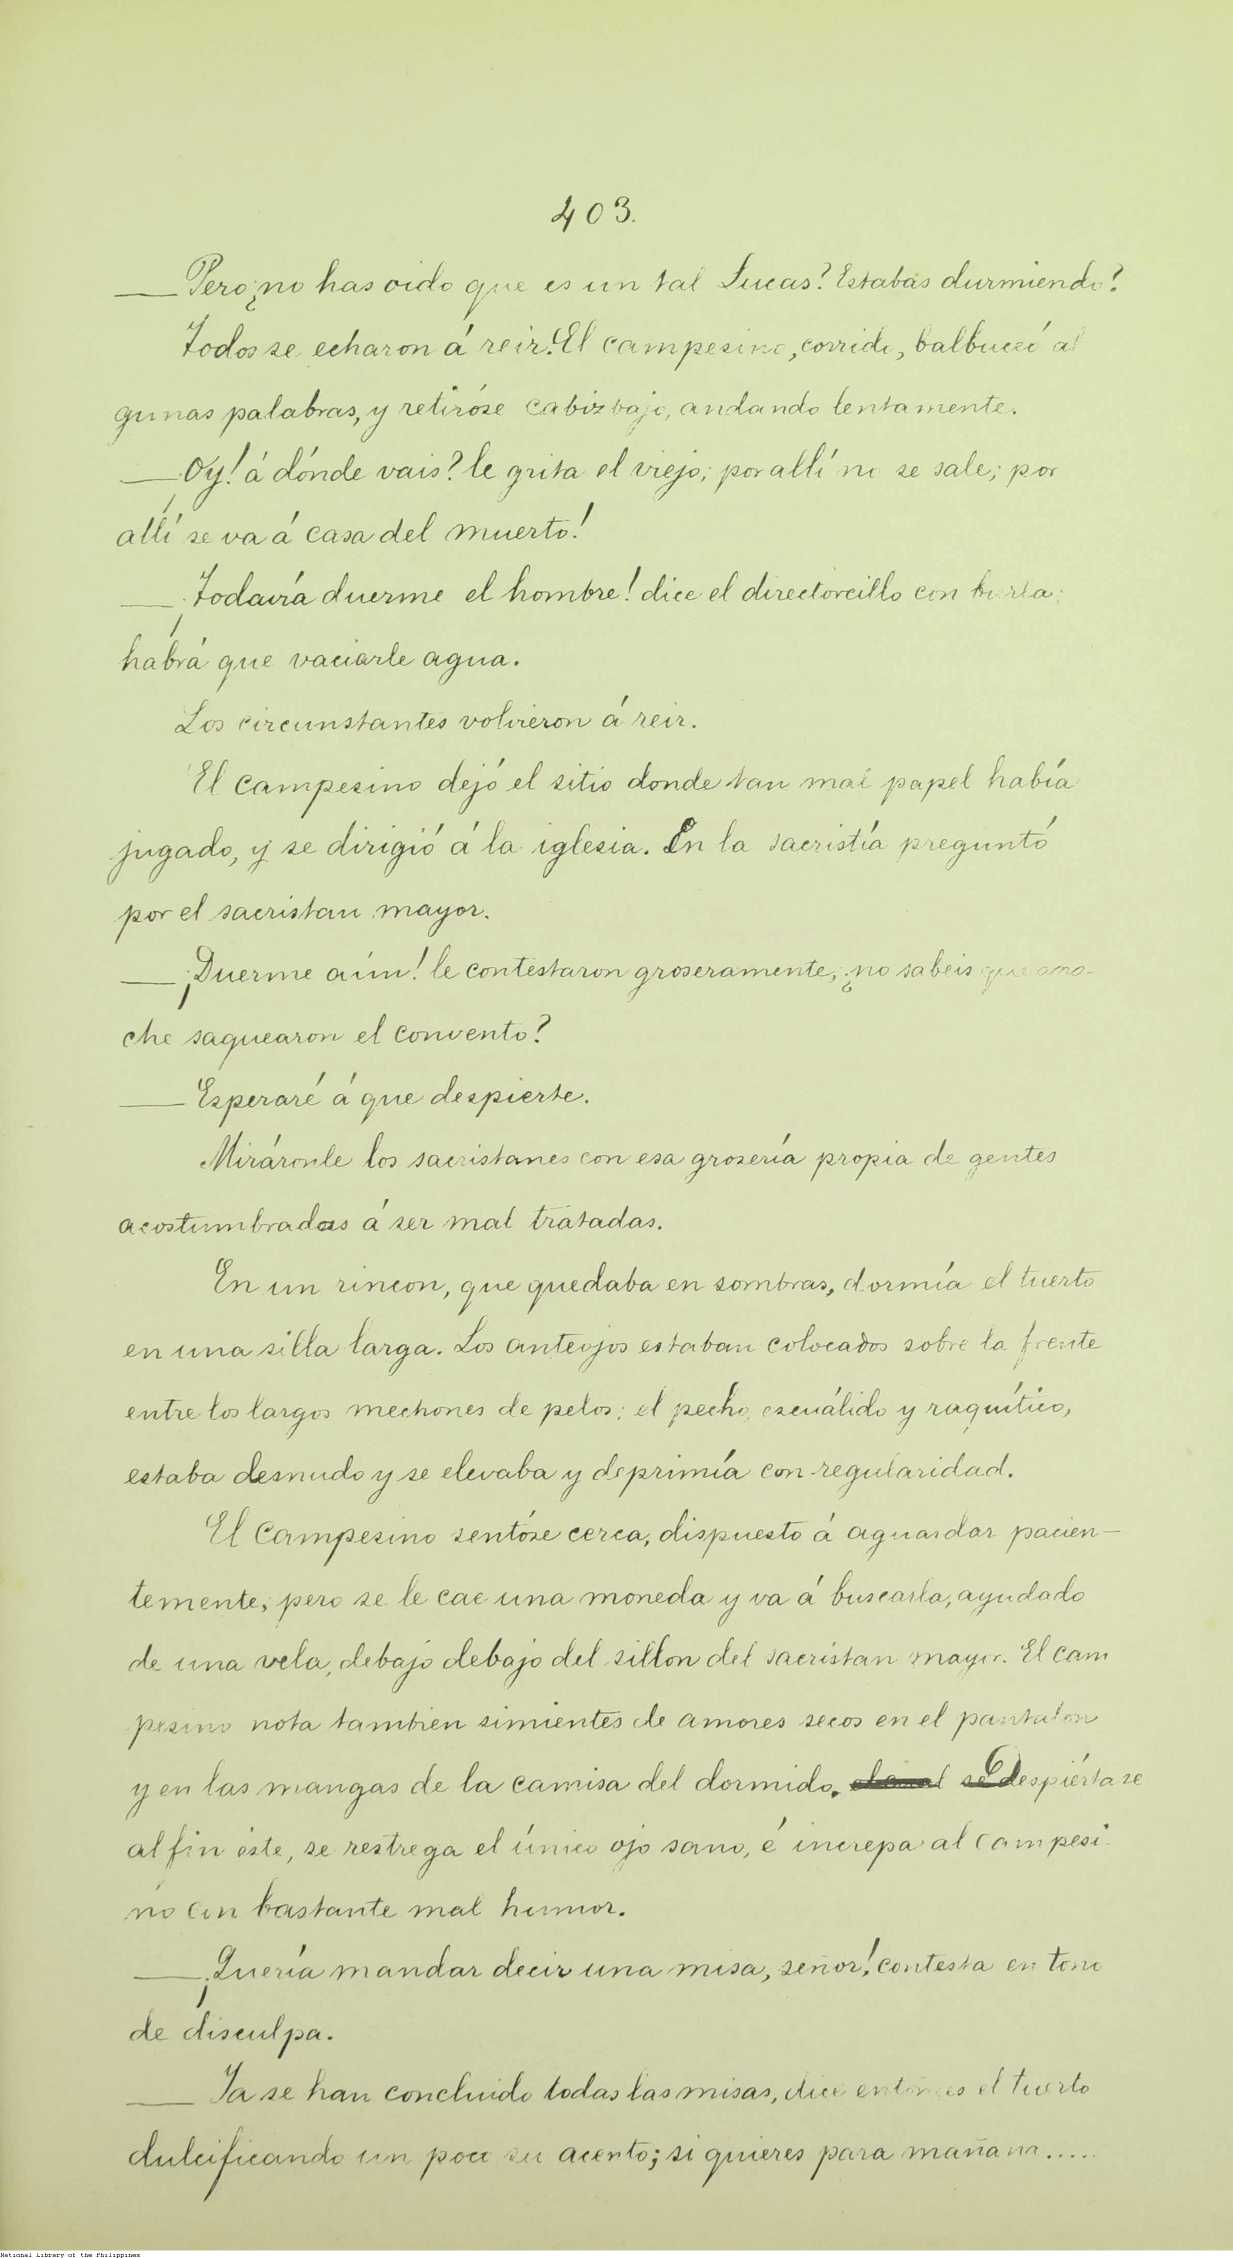 403.
— Pero ¿no has oido que es un tal Lucas? Estabas durmiendo?
Todos se echaron á reir. El campesino, corrido, balbuceó al
gunas palabras, y retiróse cabizbajo, andando lentamente.
— ¡Oy! á dónde vais? le grita el viejo; por allí no se sale; por
allí se va á casa del muerto!
— ¡Todavía duerme el hombre! dice el directorcillo con burla;
habrá que vaciarle agua.
Los circunstantes volvieron á reir.
El campesino dejó el sitio donde tan mal papel había
jugado, y se dirigió á la iglesia. En la sacristía preguntó
por el sacristan mayor.
— ¡Duerme aún! le contestaron groseramente; ¿no sabeis que ano-
che saquearon el convento?
— Esperaré á que despierte.
Miráronle los sacristanes con esa grosería propia de gentes
acostumbradas á ser mal tratadas.
En un rincon, que quedaba en sombras, dormía el tuerto
en una silla larga. Los anteojos estaban colocados sobre la frente
entre los largos mechones de pelos; el pecho, escuálido y raquítico,
estaba desnudo y se elevaba y deprimía con regularidad.
El campesino sentóse cerca, dispuesto á aguardar pacien-
temente; pero se le cae una moneda y va á buscarla, ayudado
de una vela, debajo debajo del sillon del sacristan mayor. El cam
pesino nota tambien simientes de amores secos en el pantalon
y en las mangas de la camisa del dormido. el cual se Despiértase
al fin éste, se restrega el único ojo sano, é increpa al campesi
no con bastante mal humor.
— ¡Quería mandar decir una misa, señor! contesta en tono
de disculpa.
— Ya se han concluido todas las misas, dice entonces el tuerto
dulcificando un poco su acento; si quieres para mañana.....
National Library of the Philippines